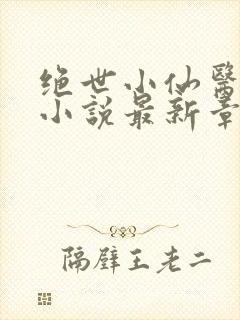 绝世小仙醫
小說最新章
隔壁王老二